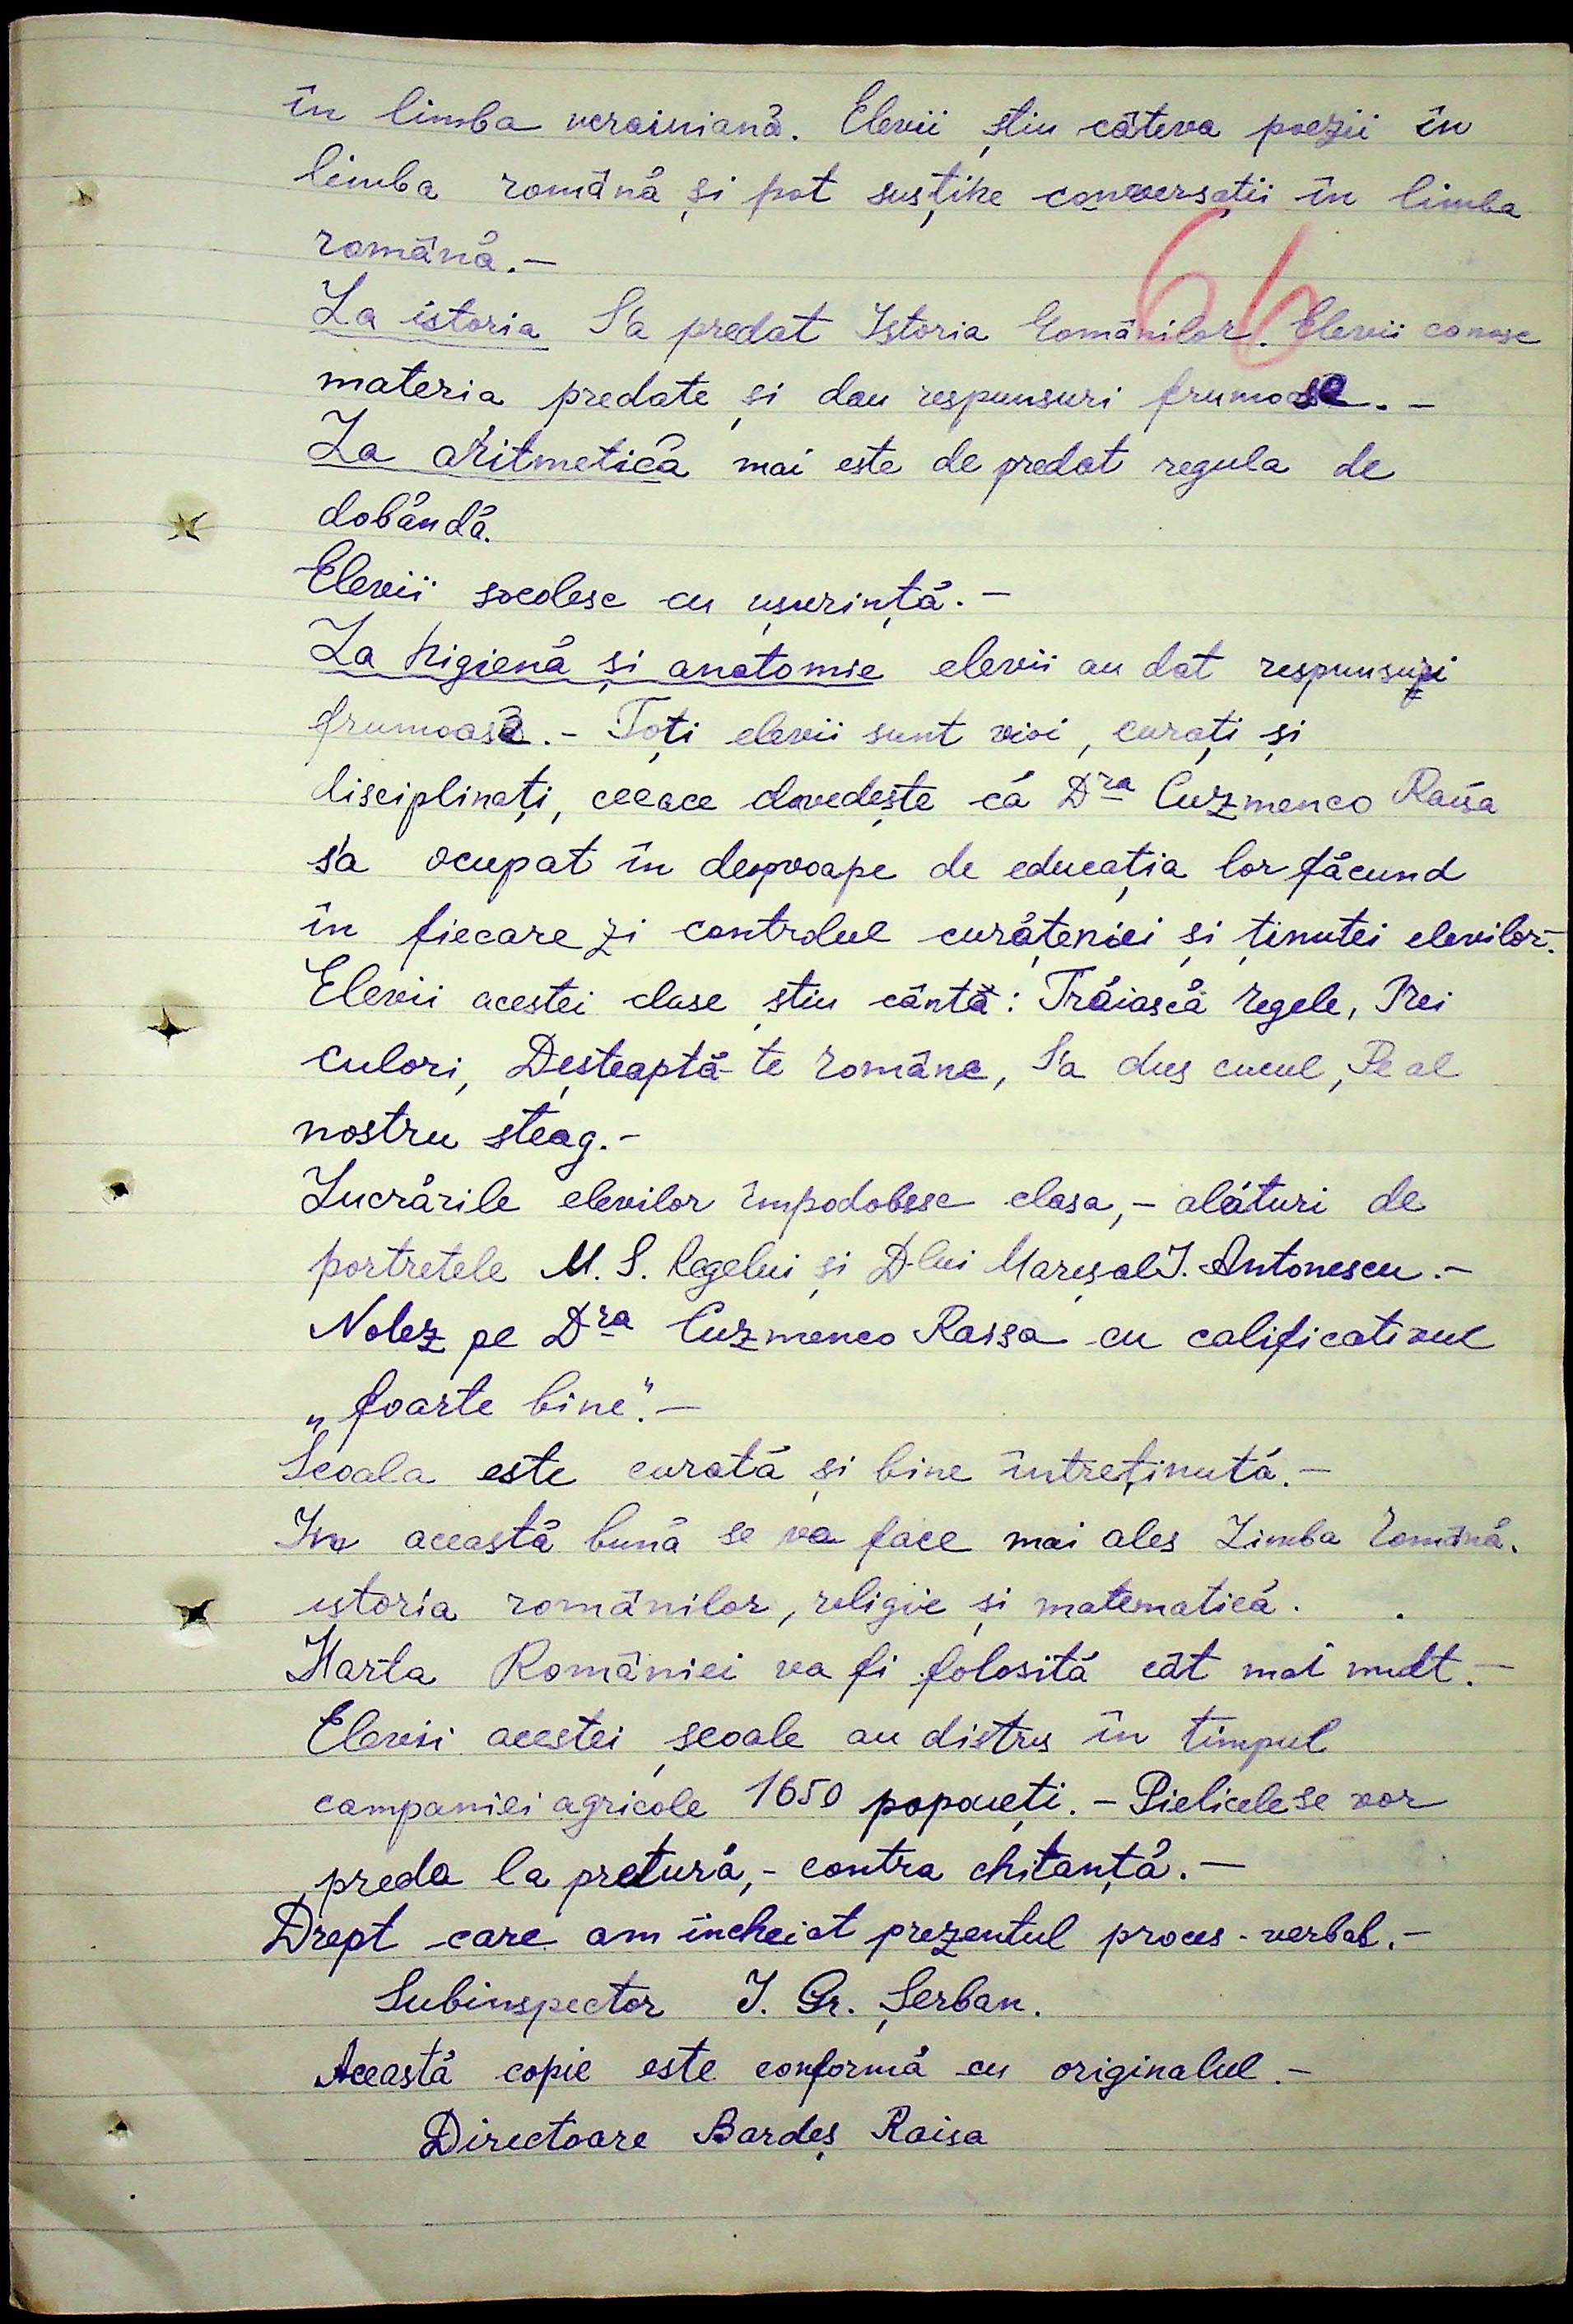 în limba ucrainiană. Elevii știu câteva poezii în
limba română și pot susține conversații în limba
română.-
66
La istoria S'a predat Istoria Românilor. Elevii conosc
materia predate și dau respunsuri frumoase.-
La aritmetică mai este de predat regula de
dobândă.
Elevii socolesc cu ușurință.-
La higienă și anatomie elevii au dat respunsuri
frumoase.- Toți elevii sunt vioi, curați și
disciplinați, ceeace dovedește că Dra Cuzmenco Raisa
s'a ocupat în deaproape de educația lor făcund
în fiecare zi controlul curățeniei și ținutei elevilor.-
Elevii acestei clase știu cântă: Trăiască regele, Trei
culori, Deșteaptă-te române, S'a dus cucul, Pe al
nostru steag.-
Lucrările elevilor împodobesc clasa,- alături de
portretele M. S. Regelui și D-lui Mareșal I. Antonescu.-
Notez pe Dra Cuzmenco Raisa cu calificativul
„foarte bine".-
Scoala este curată și bine întreținută.-
In această lună se va face mai ales Limba Română.
istoria românilor, religie și matematică.
Harta României va fi folosită cât mai mult.-
Elevii acestei școale au distrus în timpul
campaniei agricole 1650 popoueți.- Pielicele se vor
preda la pretură,- contra chitanță.-
Drept care am incheiat prezentul proces-verbal.-
Subinspector I. Gr. Șerban.
Această copie este conformă cu originalul.-
Directoare Bardeș Raisa